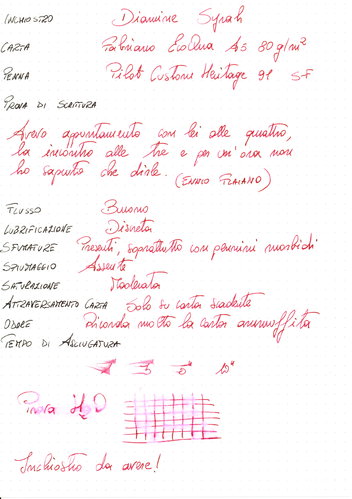 INCHIOSTRO Diamine Syrah
CARTA Fabriano EcoQua A5 80 g/m²
PENNA Pilot Custom Heritage 91 S-F
PROVA DI SCRITTURA
Avevo appuntamento con lei alle quattro,
la incontro alle tre e per un'ora non
ho saputo che dirle. (ENNIO FLAIANO)
FLUSSO Buono
LUBRIFICAZIONE Discreta
SFUMATURE Presenti, soprattutto con pennini morbidi
SPIUMAGGIO Assente
SATURAZIONE Moderata
ATTRAVERSAMENTO CARTA Solo su carta scadente
ODORE Ricorda molto la carta ammuffita
TEMPO DI ASCIUGATURA
5" 10"
Prova H2O
Inchiostro da avere!